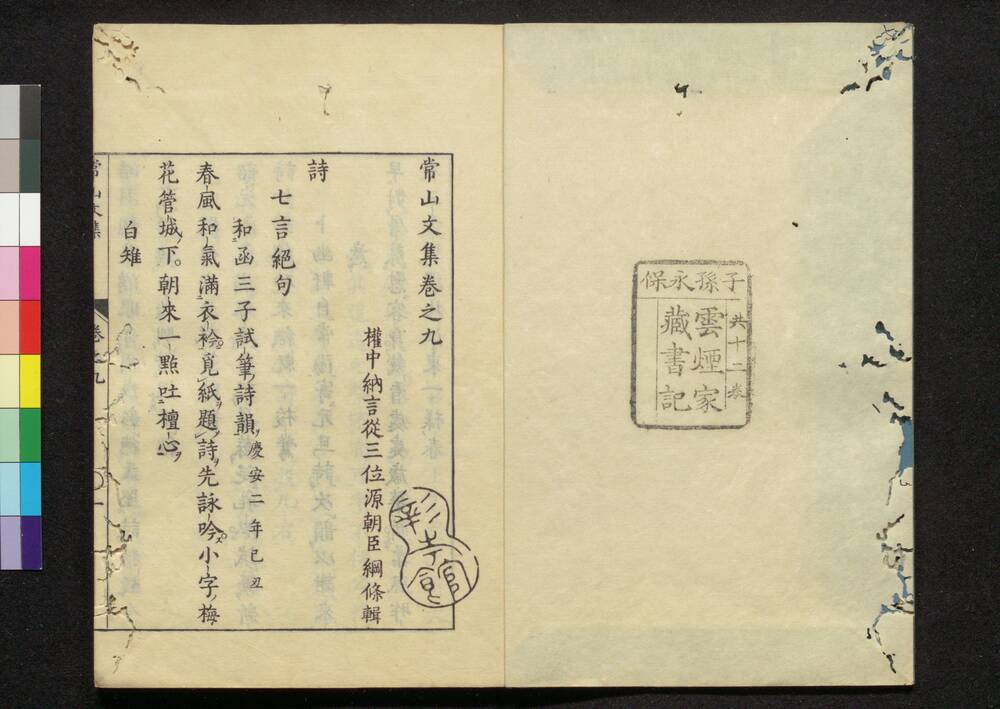 子孫永保
共十二卷
雲煙家
藏書記
常山文集卷之九
權中納言從三位源朝臣綱條輯
詩
七言絕句
和函三子試筆詩韻 慶安二年己丑
春風和氣滿衣衿覓紙題詩先詠吟小字梅
花管城下朝來一點吐檀心
白雉
常山文集
卷之九
彰考館